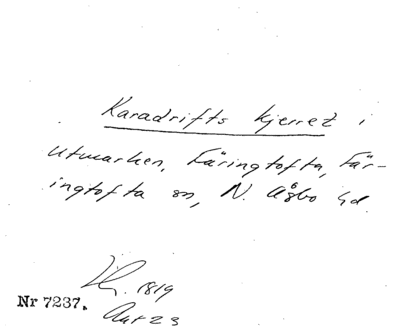 Karadrifts kjerret i
utmarken, Färingtofta, Fär-
ingtofta sn, N. Åsbo hd.
1819
Nr 7237.
Akt 23